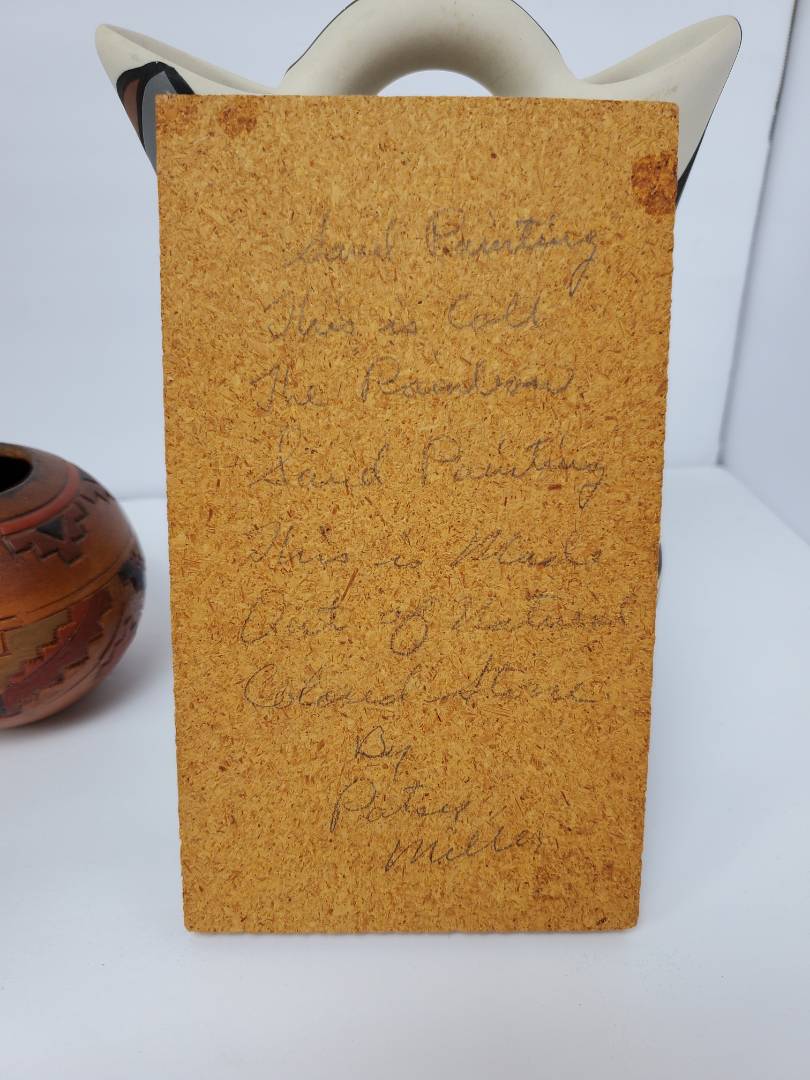 Sand Painting
This is Call
The Rainbow
Sand Painting
This is Made
Out of Natural
Colored Stone
By
Patsy
Miller